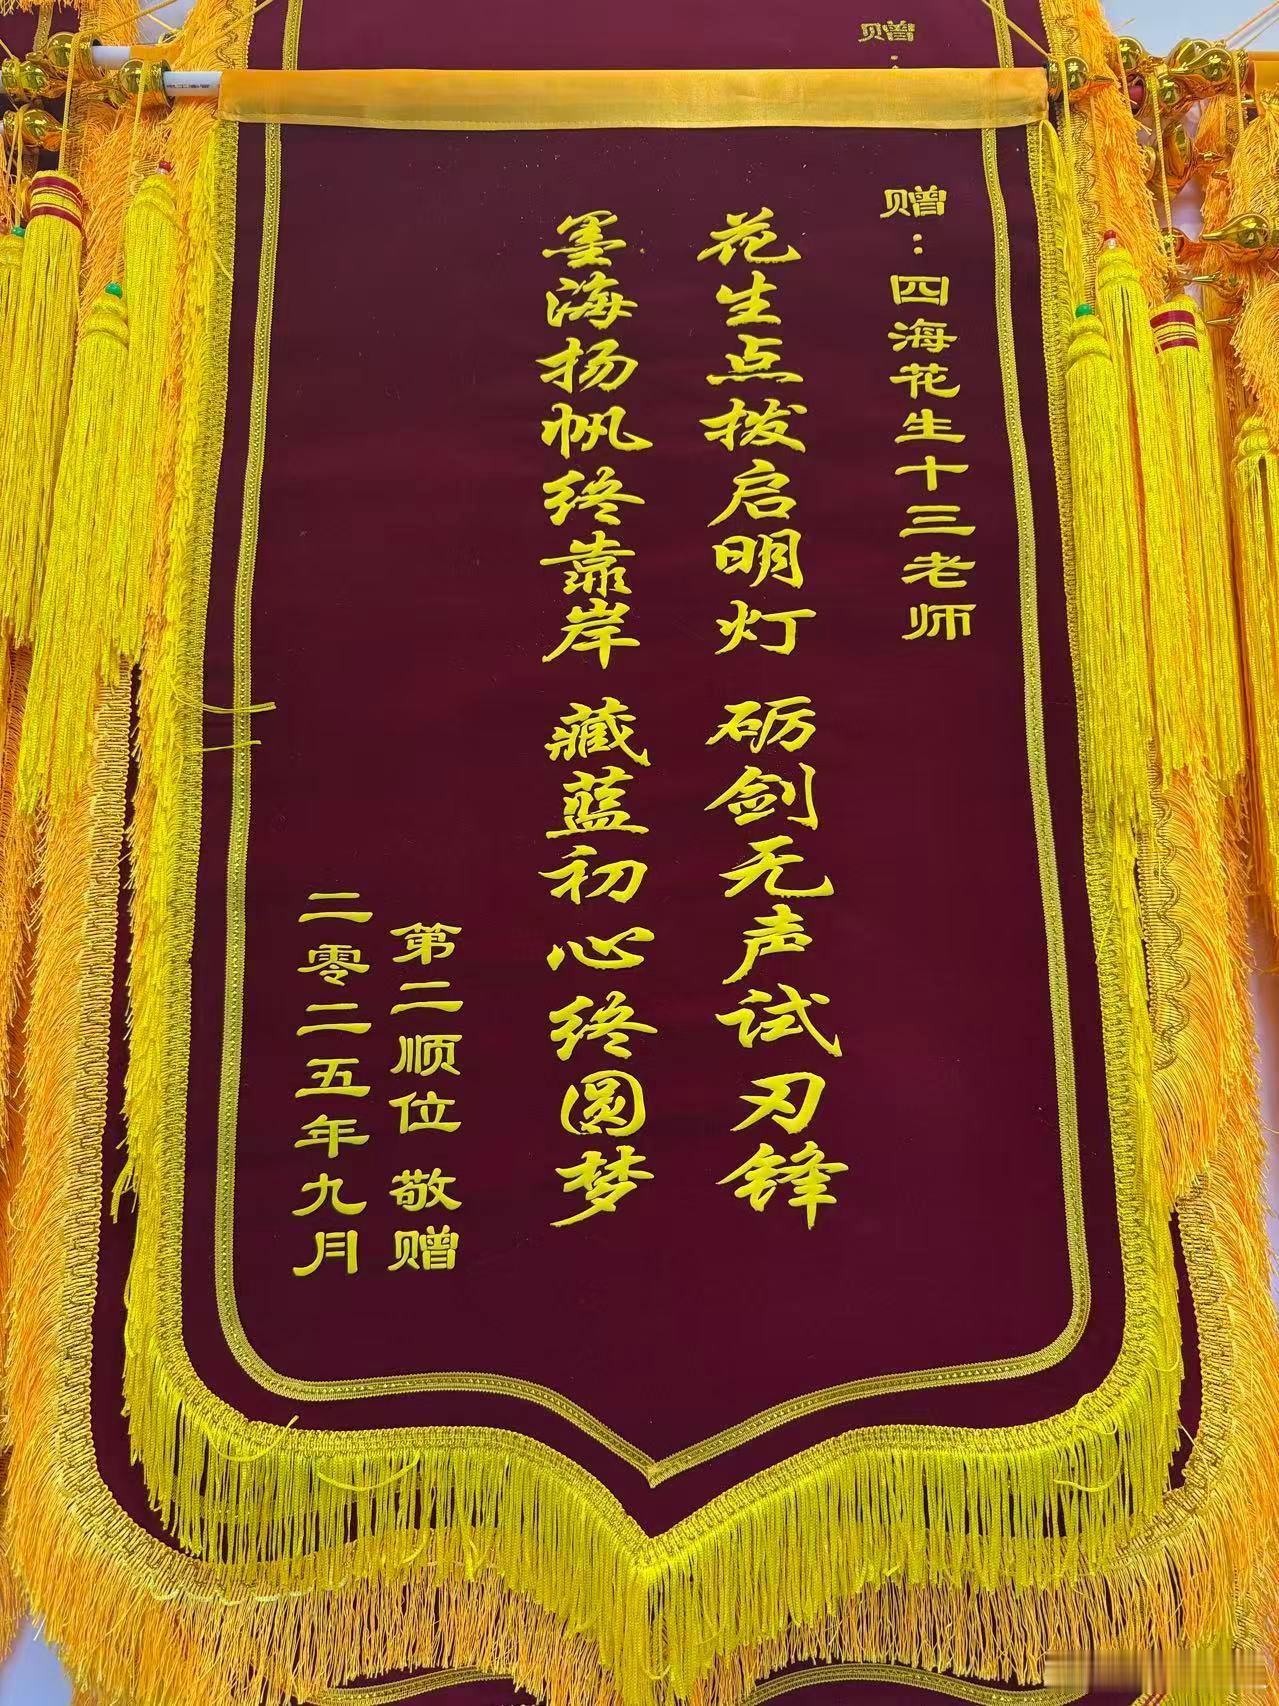 赠
赠：四海花生十三老师
花生点拨启明灯 砺剑无声试刃锋
墨海扬帆终靠岸 藏蓝初心终圆梦
第二顺位 敬赠
二零二五年九月